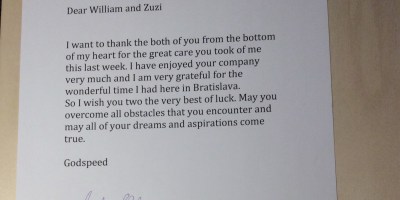 Dear William and Zuzi
I want to thank the both of you from the bottom
of my heart for the great care you took of me
this last week. I have enjoyed your company
very much and I am very grateful for the
wonderful time I had here in Bratislava.
So I wish you two the very best of luck. May you
overcome all obstacles that you encounter and
may all of your dreams and aspirations come
true.
Godspeed